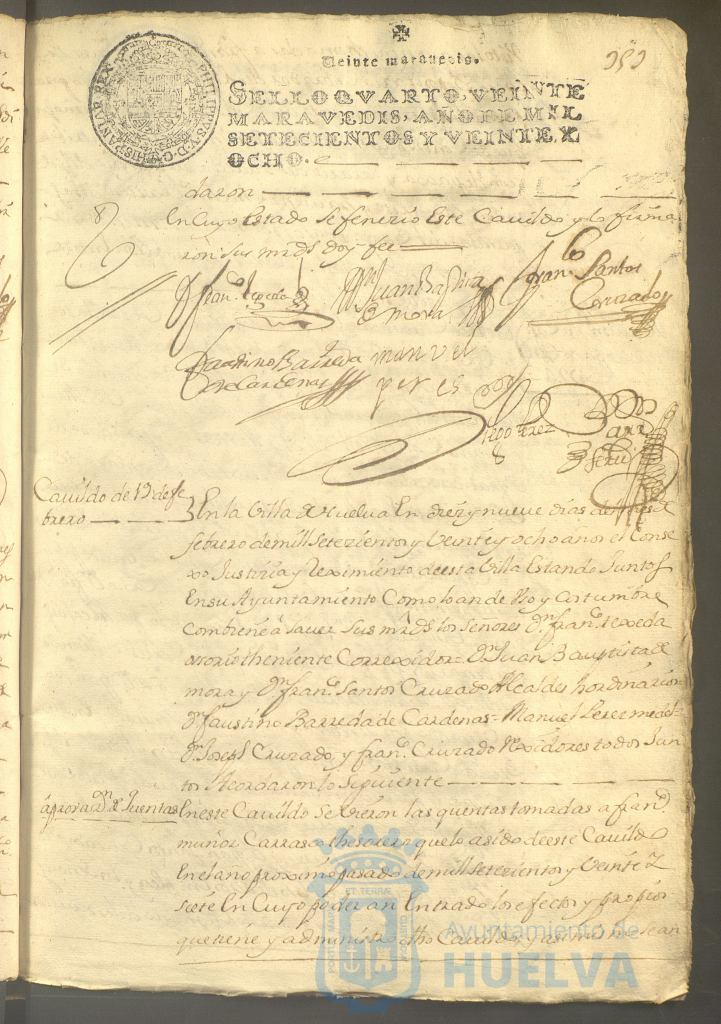 Veinte maravedis.
SELLO QVARTO, VEINTE
MARAVEDIS, AÑO DE MIL
SETECIENTOS Y VEINTE Y
OCHO.
HISPANIAR REX PHILIPPVS V D G
daron
En Cuyo Estado se fenezio Este Cavildo y lo firma
ron sus mrds doy fee
Juan Baptta
Mora
Fran.co Santos
Cruzado
Faustino Barreda
de Cardenas
manuel
perez
Cavildo de 19 de fe
brero
En la Villa de Huelva En diez y nueve dias del mes de
febrero de mill setezientos y Veinte y ocho años el Conse
xo Justizia y Reximiento de esta Villa Estando Juntos
En su Ayuntamiento Como lo han de Uso y Costumbre
Combiene a Saver Sus mrds los Señores Dn. fran.co texeda
osorio theniente Correxidor = Dn. Juan Bauptista de
mora y Dn. fran.co Santos Cruzado Alcaldes hordinarios
Dn. faustino Barreda de Cardenas = Manuel Perez medel =
Dn. Joseph Cruzado y fran.co Cruzado Rexidores todos Jun
tos Acordaron lo siguiente
aprovaon. de Quentas
En este Cavildo Se Vieron las quentas tomadas a fran.co
muñoz Carrasco thesorero que lo a sido de este Cavildo
En el año proximo pasado de mill setezientos y Veinte y
siete En Cuyo poder an Entrado los efectos y propios
que tiene y administra dho Cavildo, y asimismo Sean
PORTUS MARIS ET TERRÆ CUSTODIA
Ayuntamiento de
HUELVA